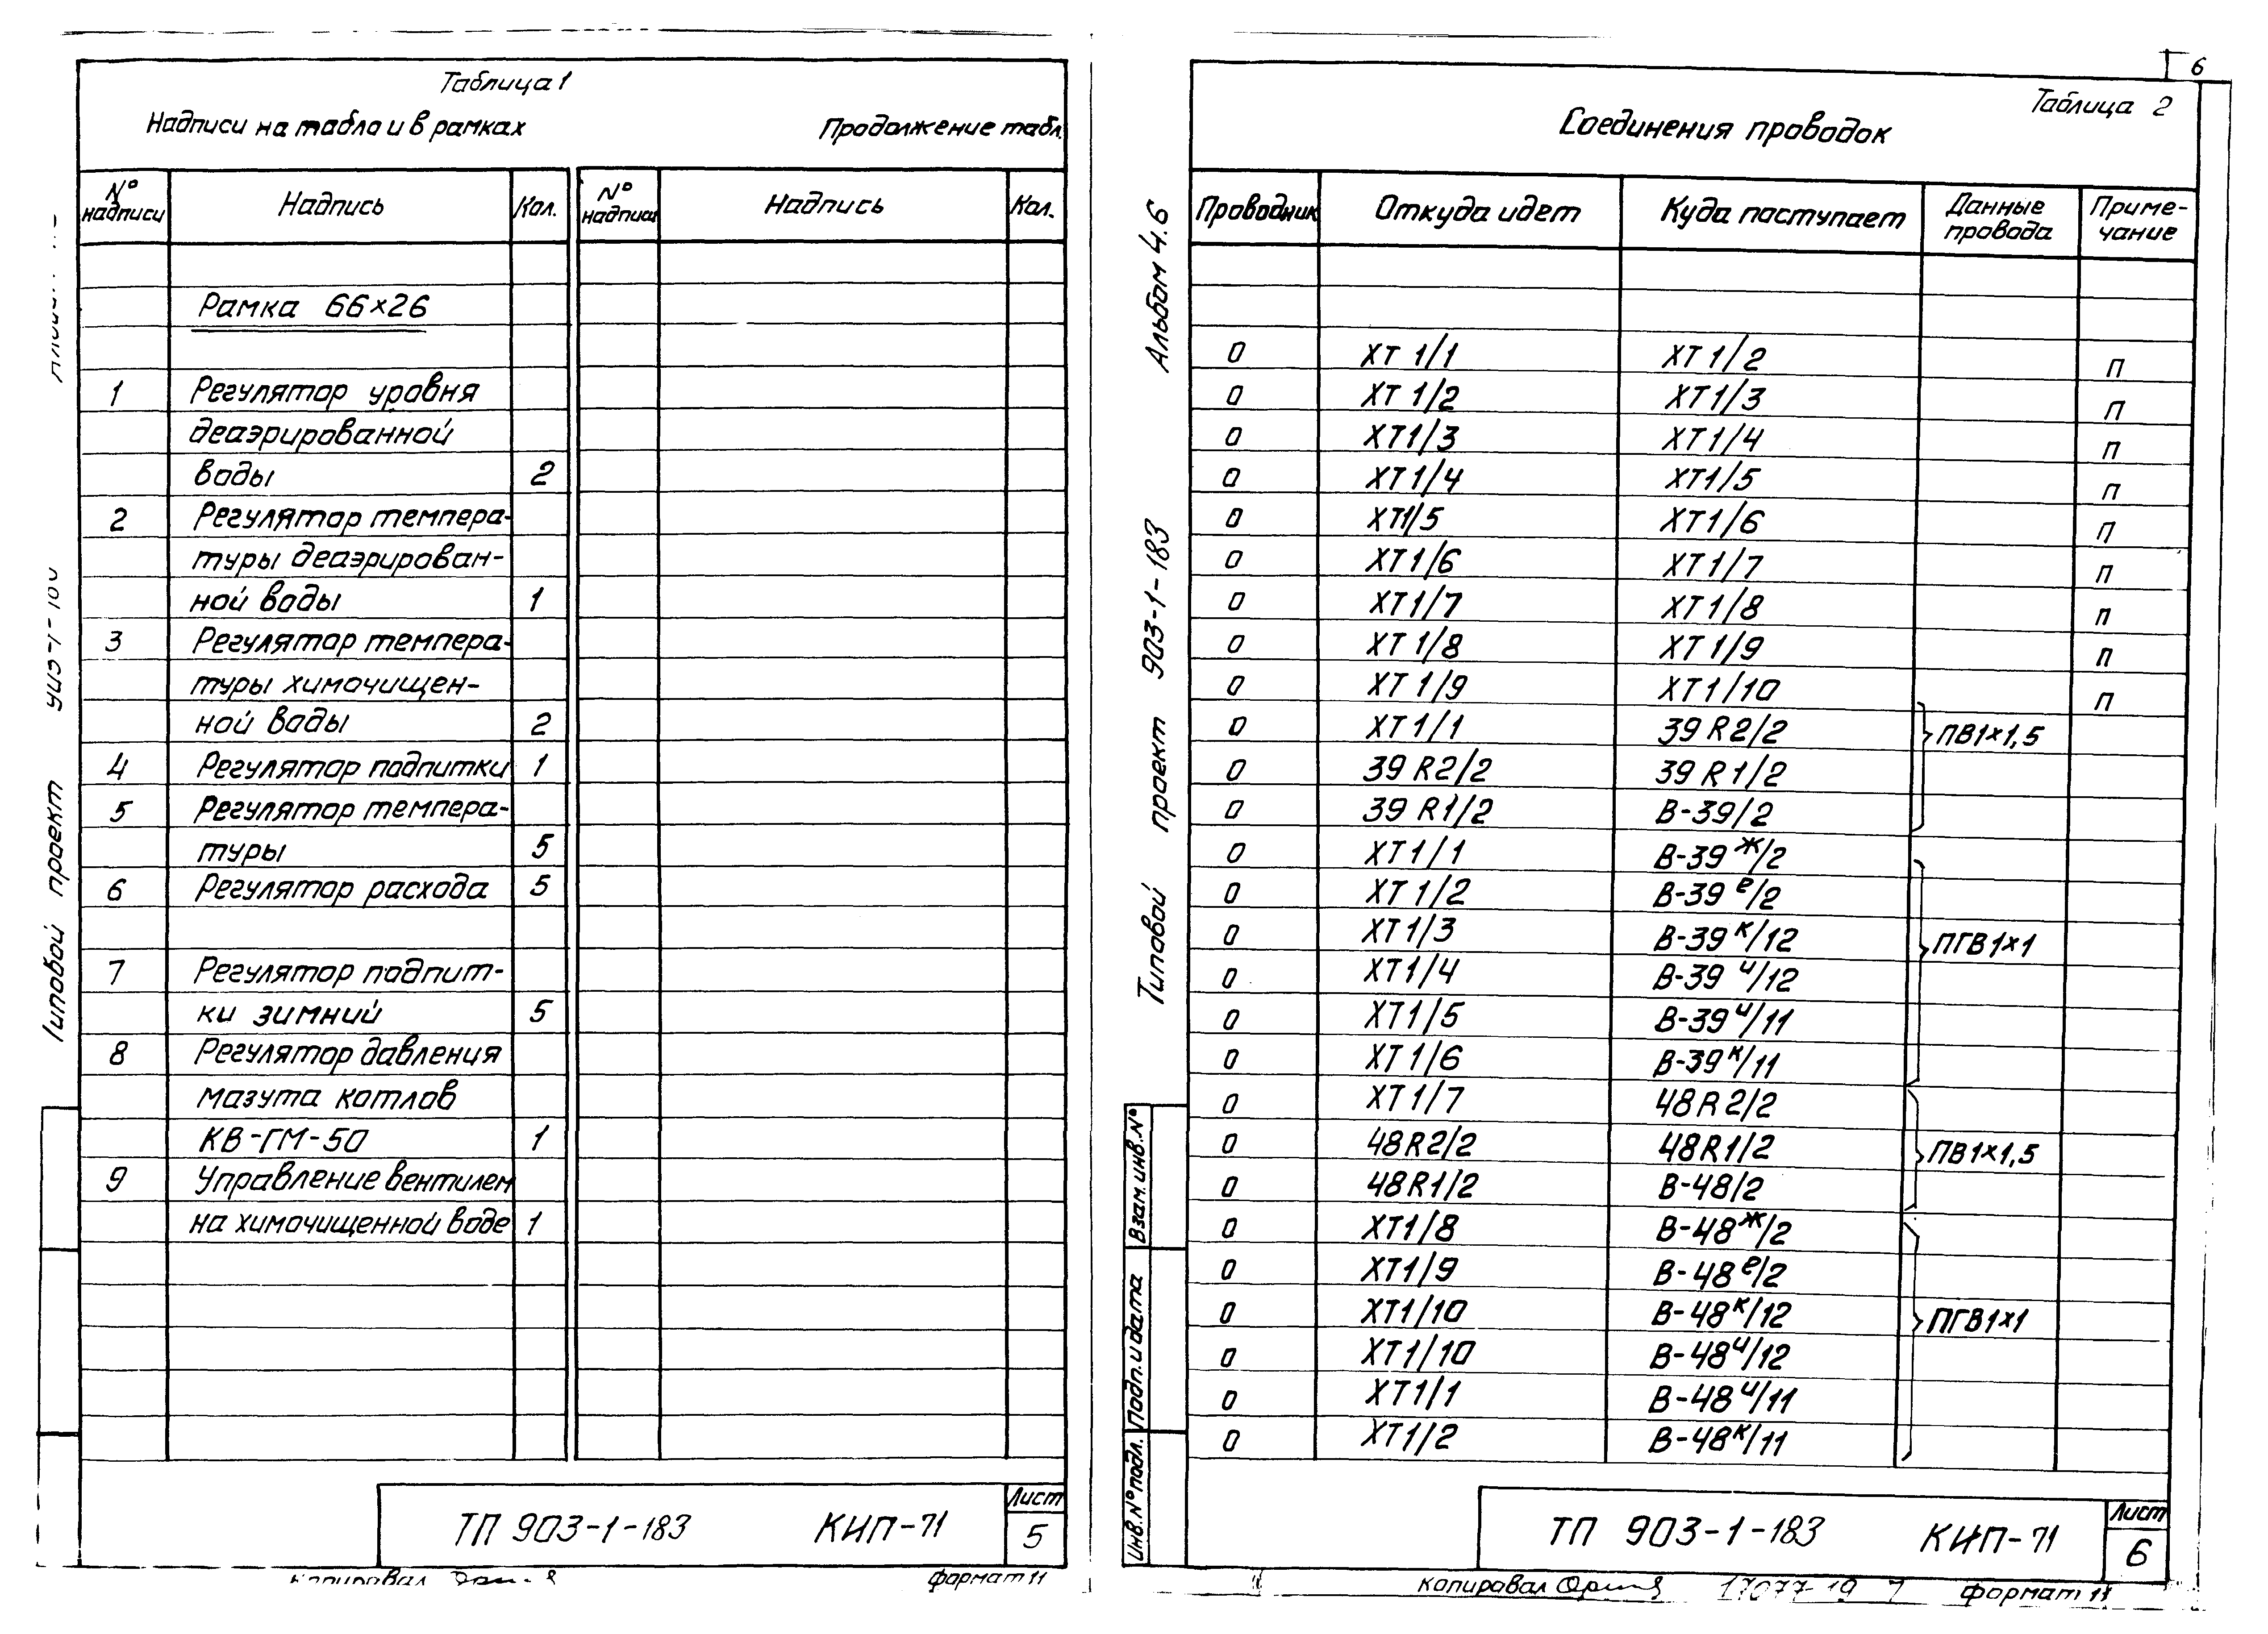 Таблица 1
Надписи на табло и в рамках Продолжение табл.
№ надписи Надпись Кол. № надписи Надпись Кол.
Рамка 66×26
1 Регулятор уровня
деаэрированной
воды 2
2 Регулятор темпера-
туры деаэрирован-
ной воды 1
3 Регулятор темпера-
туры химочищен-
ной воды 2
4 Регулятор подпитки 1
5 Регулятор темпера-
туры 5
6 Регулятор расхода 5
7 Регулятор подпит-
ки зимний 5
8 Регулятор давления
мазута котлов
КВ-ГМ-50 1
9 Управление вентилем
на химочищенной воде 1
Типовой проект
ТП 903-1-183 КИП-71 Лист 5
Копировал формат 11
6
Таблица 2
Соединения проводок
Проводник Откуда идет Куда поступает Данные провода Приме-чание
0 ХТ 1/1 ХТ 1/2 п
0 ХТ 1/2 ХТ1/3 п
0 ХТ1/3 ХТ1/4 п
0 ХТ1/4 ХТ1/5 п
0 ХТ1/5 ХТ1/6 п
0 ХТ1/6 ХТ1/7 п
0 ХТ1/7 ХТ1/8 п
0 ХТ 1/8 ХТ 1/9 п
0 ХТ 1/9 ХТ1/10 п
0 ХТ1/1 39 R2/2 ПВ1×1,5
0 39 R2/2 39 R1/2
0 39 R1/2 В-39/2
0 ХТ1/1 В-39ж/2
0 ХТ1/2 В-39е/2
0 ХТ1/3 В-39к/12 ПГВ1×1
0 ХТ1/4 В-39и/12
0 ХТ1/5 В-39и/11
0 ХТ1/6 В-39к/11
0 ХТ1/7 48R2/2
0 48R2/2 48R1/2 ПВ1×1,5
0 48R1/2 В-48/2
0 ХТ1/8 В-48ж/2
0 ХТ1/9 В-48е/2
0 ХТ1/10 В-48к/12 ПГВ1×1
0 ХТ1/10 В-48и/12
0 ХТ1/1 В-48и/11
0 ХТ1/2 В-48к/11
Альбом 4.6
Типовой проект 903-1-183
Взам. инв. №
Подп. и дата
Инв. № подл.
ТП 903-1-183 КИП-71 Лист 6
копировал 17077-19 7 формат 11